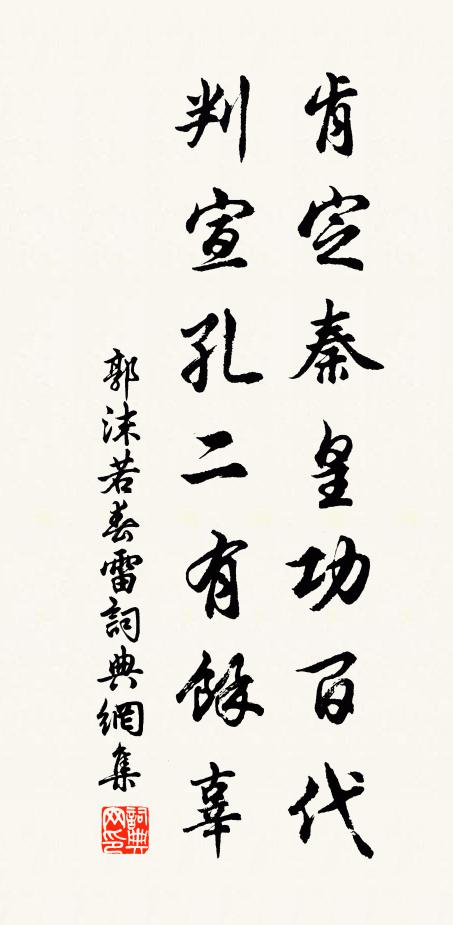 肯定秦皇功百代
判宣孔二有餘辜
郭沫若春雷詞典網集
詞典网印